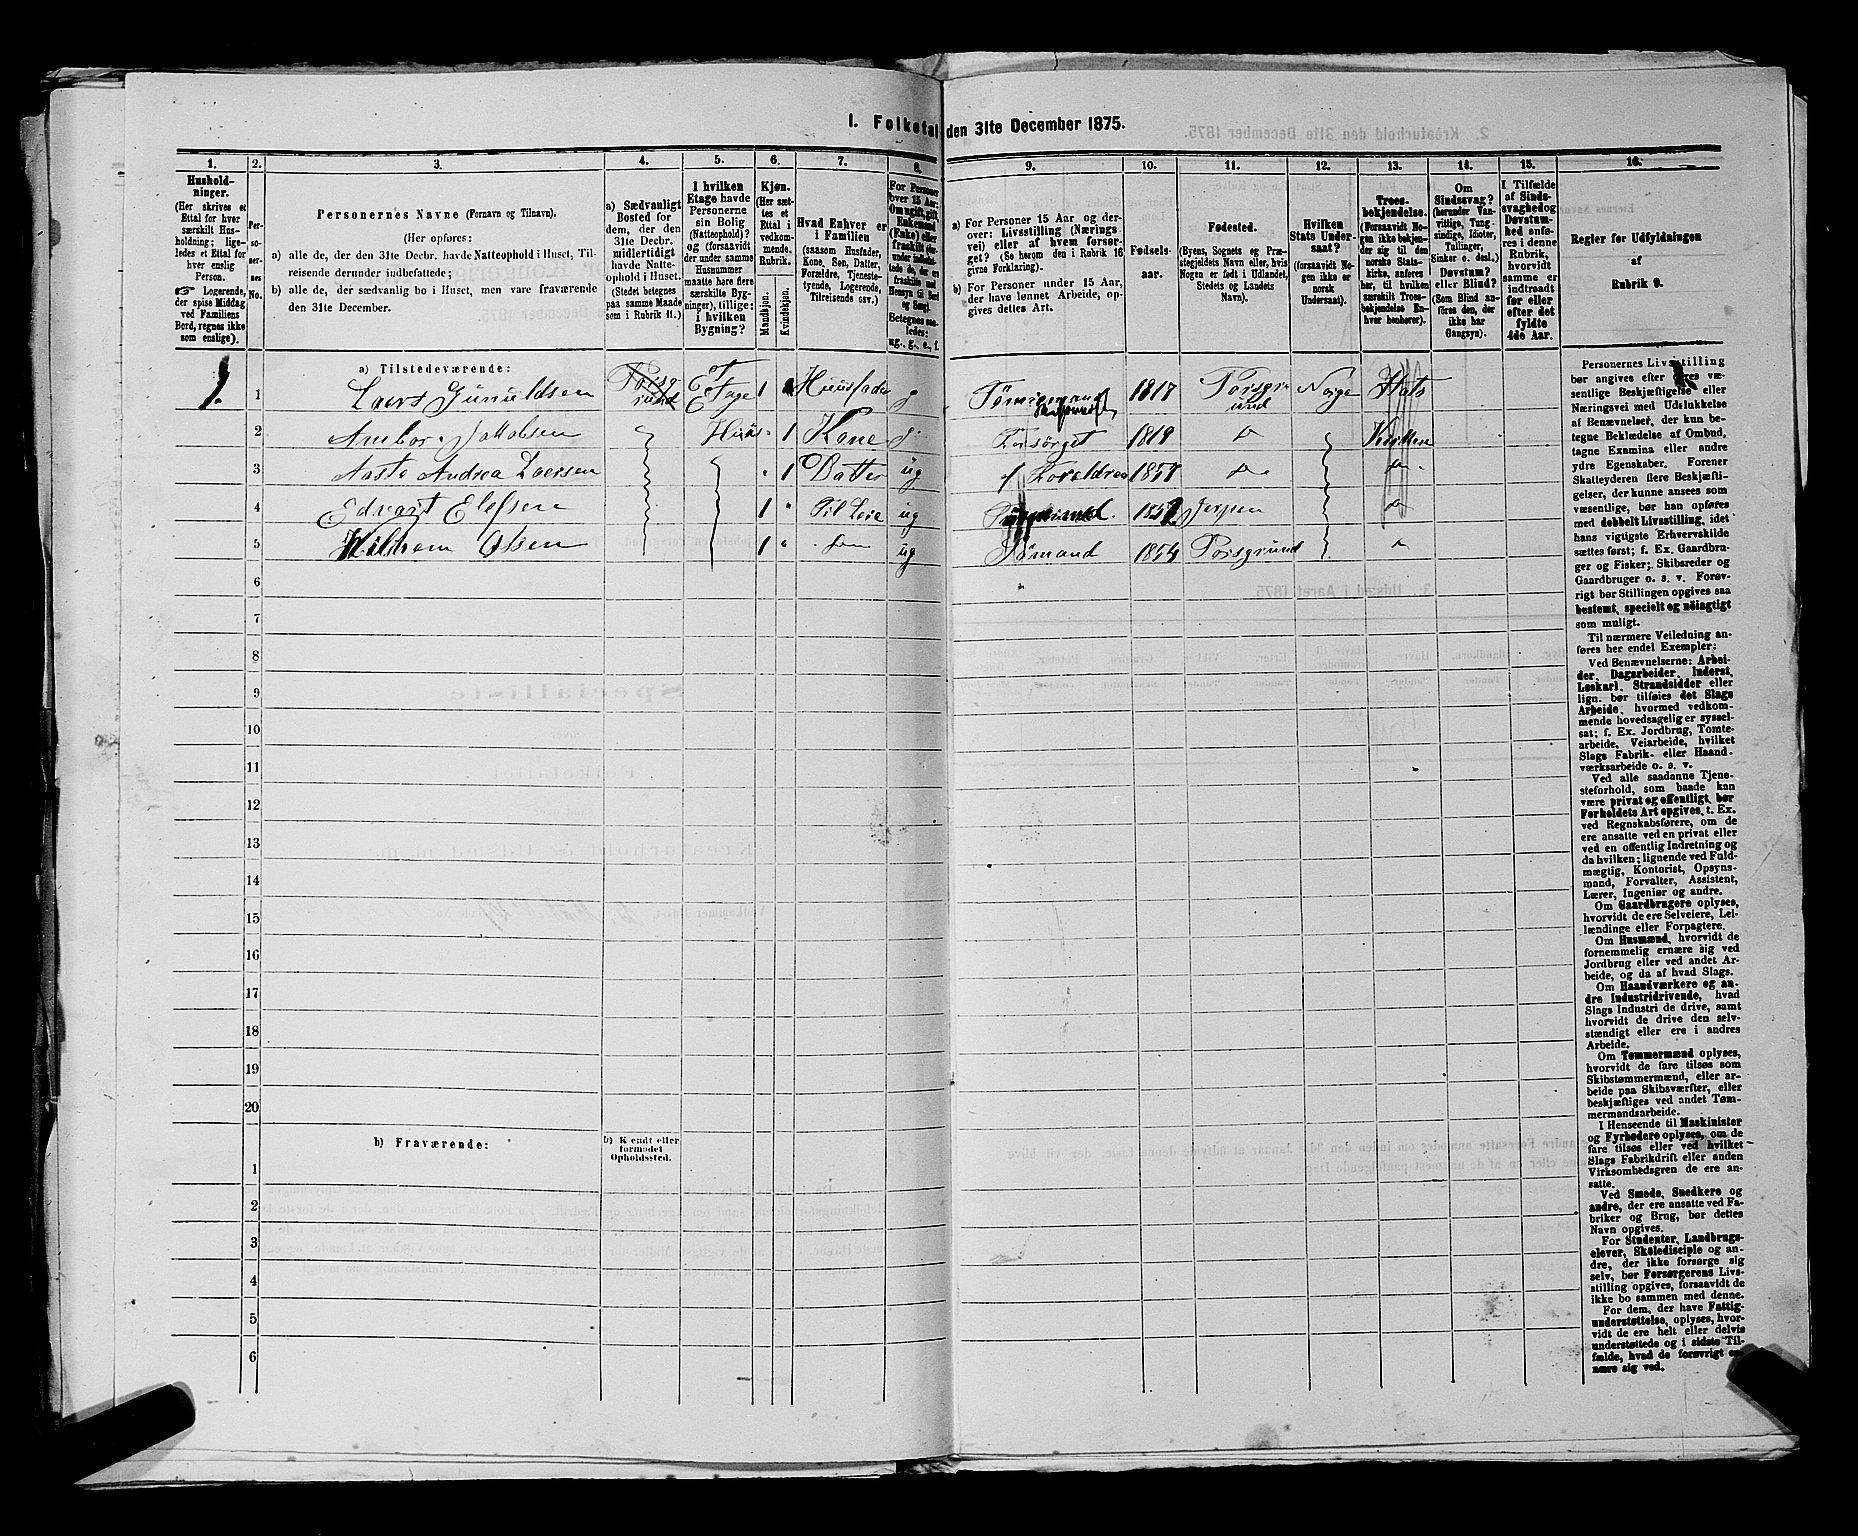 I. Folketal den 31te December 1875.
1. 2. 3. 4. 5. 6. 7. 8. 9. 10. 11. 12. 13. 14. 15. 16.
Hushold-
ninger.
(Her skrives et
Ettal for hver
særskilt Hus-
holdning; lige-
ledes et Ettal
for hver
enslig
Person.
Logerende,
der spise Middag
ved Familiens
Bord, regnes ikke
som enslige).
Per-
so-
ner-
nes
No.
Personernes Navne (Fornavn og Tilnavn).
(Her opføres:
a) alle de, der den 31te Decbr. havde Natteophold i Huset, Til-
reisende derunder indbefattede;
b) alle de, der sædvanlig bo i Huset, men vare fraværende
den 31te December.
a) Sædvanligt
Bosted for
dem, der den
31te Decbr.
midlertidigt
havde Natte-
ophold i Huset.
(Stedet betegnes
paa samme Maade
som i Rubrik 11.)
I hvilken
Etage havde
Personerne
sin Bolig
(Natteophold)?
og (forsaavidt
der under samme
Husnummer
maatte høre flere
særskilte Byg-
ninger), tillige:
i hvilken
Bygning?
Kjøn.
(Her sæt-
tes et
Ettal i
vedkom-
mende.
Rubrik.
Mandkjøn.
Kvindekjøn.
Hvad Enhver er
i Familien
(saasom Husfader,
Kone, Søn, Datter,
Forældre, Tjeneste-
tyende, Logerende,
Tilreisende osv.)
For Personer
over 15 Aar:
Om ugift, gift,
Enkemand
(Enke) eller
fraskilt
Betegnes saa-
ledes:
ug., g., e., f.
a) For Personer 15 Aar og der-
over: Livsstilling (Nærings-
vei) eller af hvem forsør-
get? (Se herom den i Rubrik 16
givne Forklaring).
b) For Personer under 15 Aar,
der have lønnet Arbeide, op-
gives dettes Art.
Fødsels-
aar.
Fødested.
(Byens, Sognets og Præ-
stegjeldets Navn eller, hvis
Nogen er født i Udlandet,
Stedets og Landets
Navn).
Hvilken
Stats Under-
saat?
(forsaavidt No-
gen ikke er
norsk
Undersaat).
Troes-
bekjendelse.
(Forsaavidt No-
gen ikke bekjen-
der sig til den
norske Stats-
kirke, anføres
her, til hvilken
særskilt Troes-
bekjendelse En-
hver henhører).
Om
Sindssvag?
(herunder Van-
vittige, Tung-
sindige, Idioter,
Tullinger,
Sinker o. desl.)
Døvstum?
eller Blind?
(Som Blind an-
føres den, der
ikke har
Gangsyn).
I Tilfælde
af Sinds-
svaghed og
Døvstum-
hed anfø-
res i denne
Rubrik,
hvorvidt
samme er
indtraadt
før eller
efter det
fyldte
4de Aar.
Regler for Udfyldningen
af
Rubrik 9.
a) Tilstedeværende:
1. 1 Laers Gunuldsen Porsg-rund Et Etage 1 Huusfader g Tømmermand 1817 Porsgrund Norge Stats
2 Jakobsen Huus 1 Kone g Forsørget 1819 Do Kirken
3 Aaste Andrea Laersen 1 Datter ug f Foreldrene 1857 Do Do
4 Edvart Elefsen 1 Til Leie ug 1852 Jerpen Do
5 Wilhem Olsen 1 Do ug Sømand 1854 Porsgrund Do
6
7
8
9
10
11
12
13
14
15
16
17
18
19
20
b) Fraværende:
b) Kendt eller
formodet
Opholdssted.
1
2
3
4
5
6
Personernes Livsstilling
bør angives efter deres væ-
sentlige Beskjæftigelse eller
Næringsvei med Udelukkelse
af Benævnelser, der kun be-
tegne Beklædelse af Ombud,
tagne Examina eller andre
ydre Egenskaber. Forener
Skatteyderen flere Beskjæfti-
gelser, der kunne ansees som
væsentlige, bør han opføres
med dobbelt Livsstilling, idet
hans vigtigste Erhvervskilde
sættes først; f. Ex. Gaardbru-
ger og Fisker; Skibsreder og
Gaardbruger o. s. v. Forøv-
rigt bør Stillingen opgives saa
bestemt, specielt og nöiagtigt
som muligt.
Til nærmere Veiledning an-
føres her endel Exempler:
Ved Benævnelserne: Arbei-
der, Dagarbeider, Inderst,
Løskarl, Strandsidder eller
lign. bør tilføies det Slags
Arbeide, hvormed vedkom-
mende hovedsagelig er syssel-
sat; f. Ex. Jordbrug, Tomte-
arbeide, Veiarbeide, hvilket
Slags Fabrik- eller Haand-
værksarbeide o. s. v.
Ved alle saadanne Tjene-
steforhold, som baade kan
være privat og offentligt, bør
Forholdets Art opgives, t. Ex.
ved Regnskabsførere, om de
ere ansatte ved en privat eller
ved en offentlig Indretning og
da hvilken; lignende ved Fuld-
mægtig, Kontorist, Opsyns-
mand, Forvalter, Assistent,
Lærer, Ingeniør og andre.
Om Gaardbrugere oplyses,
hvorvidt de ere Selveiere, Lei-
lændinge eller Forpagtere.
Om Husmænd, hvorvidt de
fornemmelig ernære sig ved
Jordbrug eller ved andet Ar-
beide, og da af hvad Slags.
Om Haandværkere og an-
dre Industridrivende, hvad
Slags Industri de drive, samt
hvorvidt de drive den selv-
stændigt eller ere i andres
Arbeide.
Om Tømmermænd oplyses,
hvorvidt de fare tilsøs som
Skibstømmermænd, eller ar-
beide paa Skibsværfter, eller
beskjæftiges ved andet Tøm-
mermandsarbeide.
I Henseende til Maskinister
og Fyrbødere oplyses, om de
fare tilsøs eller ved hvilket
Slags Fabrikdrift eller anden
Virksomhedsgren de ere an-
satte.
Ved Smede, Snedkere og
andre, der ere ansatte ved Fa-
briker og Brug, bør dettes
Navn opgives.
For Studenter, Landbrugs-
elever, Skoledisciple og an-
dre, der ikke forsørge sig
selv, bør Forsørgerens Livs-
stilling opgives, forsaavidt de
ikke bo sammen med denne.
For dem, der have Fattig-
understøttelse, oplyses, hvor-
vidt de ere helt eller delvis
understøttede og i sidste Til-
fælde, hvad de forøvrigt er-
nære sig ved.